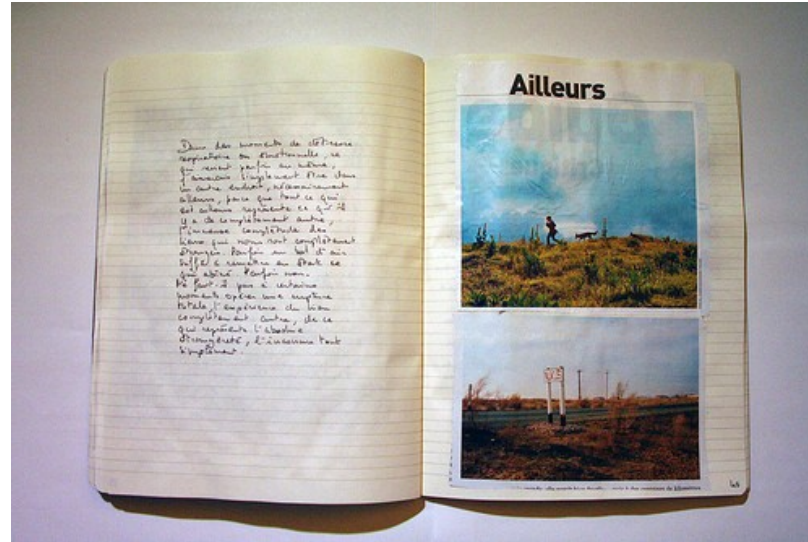 Dans des moments de détresse
respiratoire ou émotionnelle, ce
qui revient parfois au même,
j'aimerais simplement être dans
un autre endroit, nécessairement
ailleurs, parce que tout ce qui
est ailleurs représente ce qu'il
y a de complètement autre,
l'immense complétude des
liens qui nous sont complètement
étrangers. Parfois un bol d'air
suffit à remettre en état ce
qui abîmé. Parfois non.
Ne faut-il pas à certains
moments opérer une rupture
totale, l'expérience du lien
complètement autre, de ce
qui représente l'absolue
étrangeté, l'inconnu tout
simplement.
Ailleurs